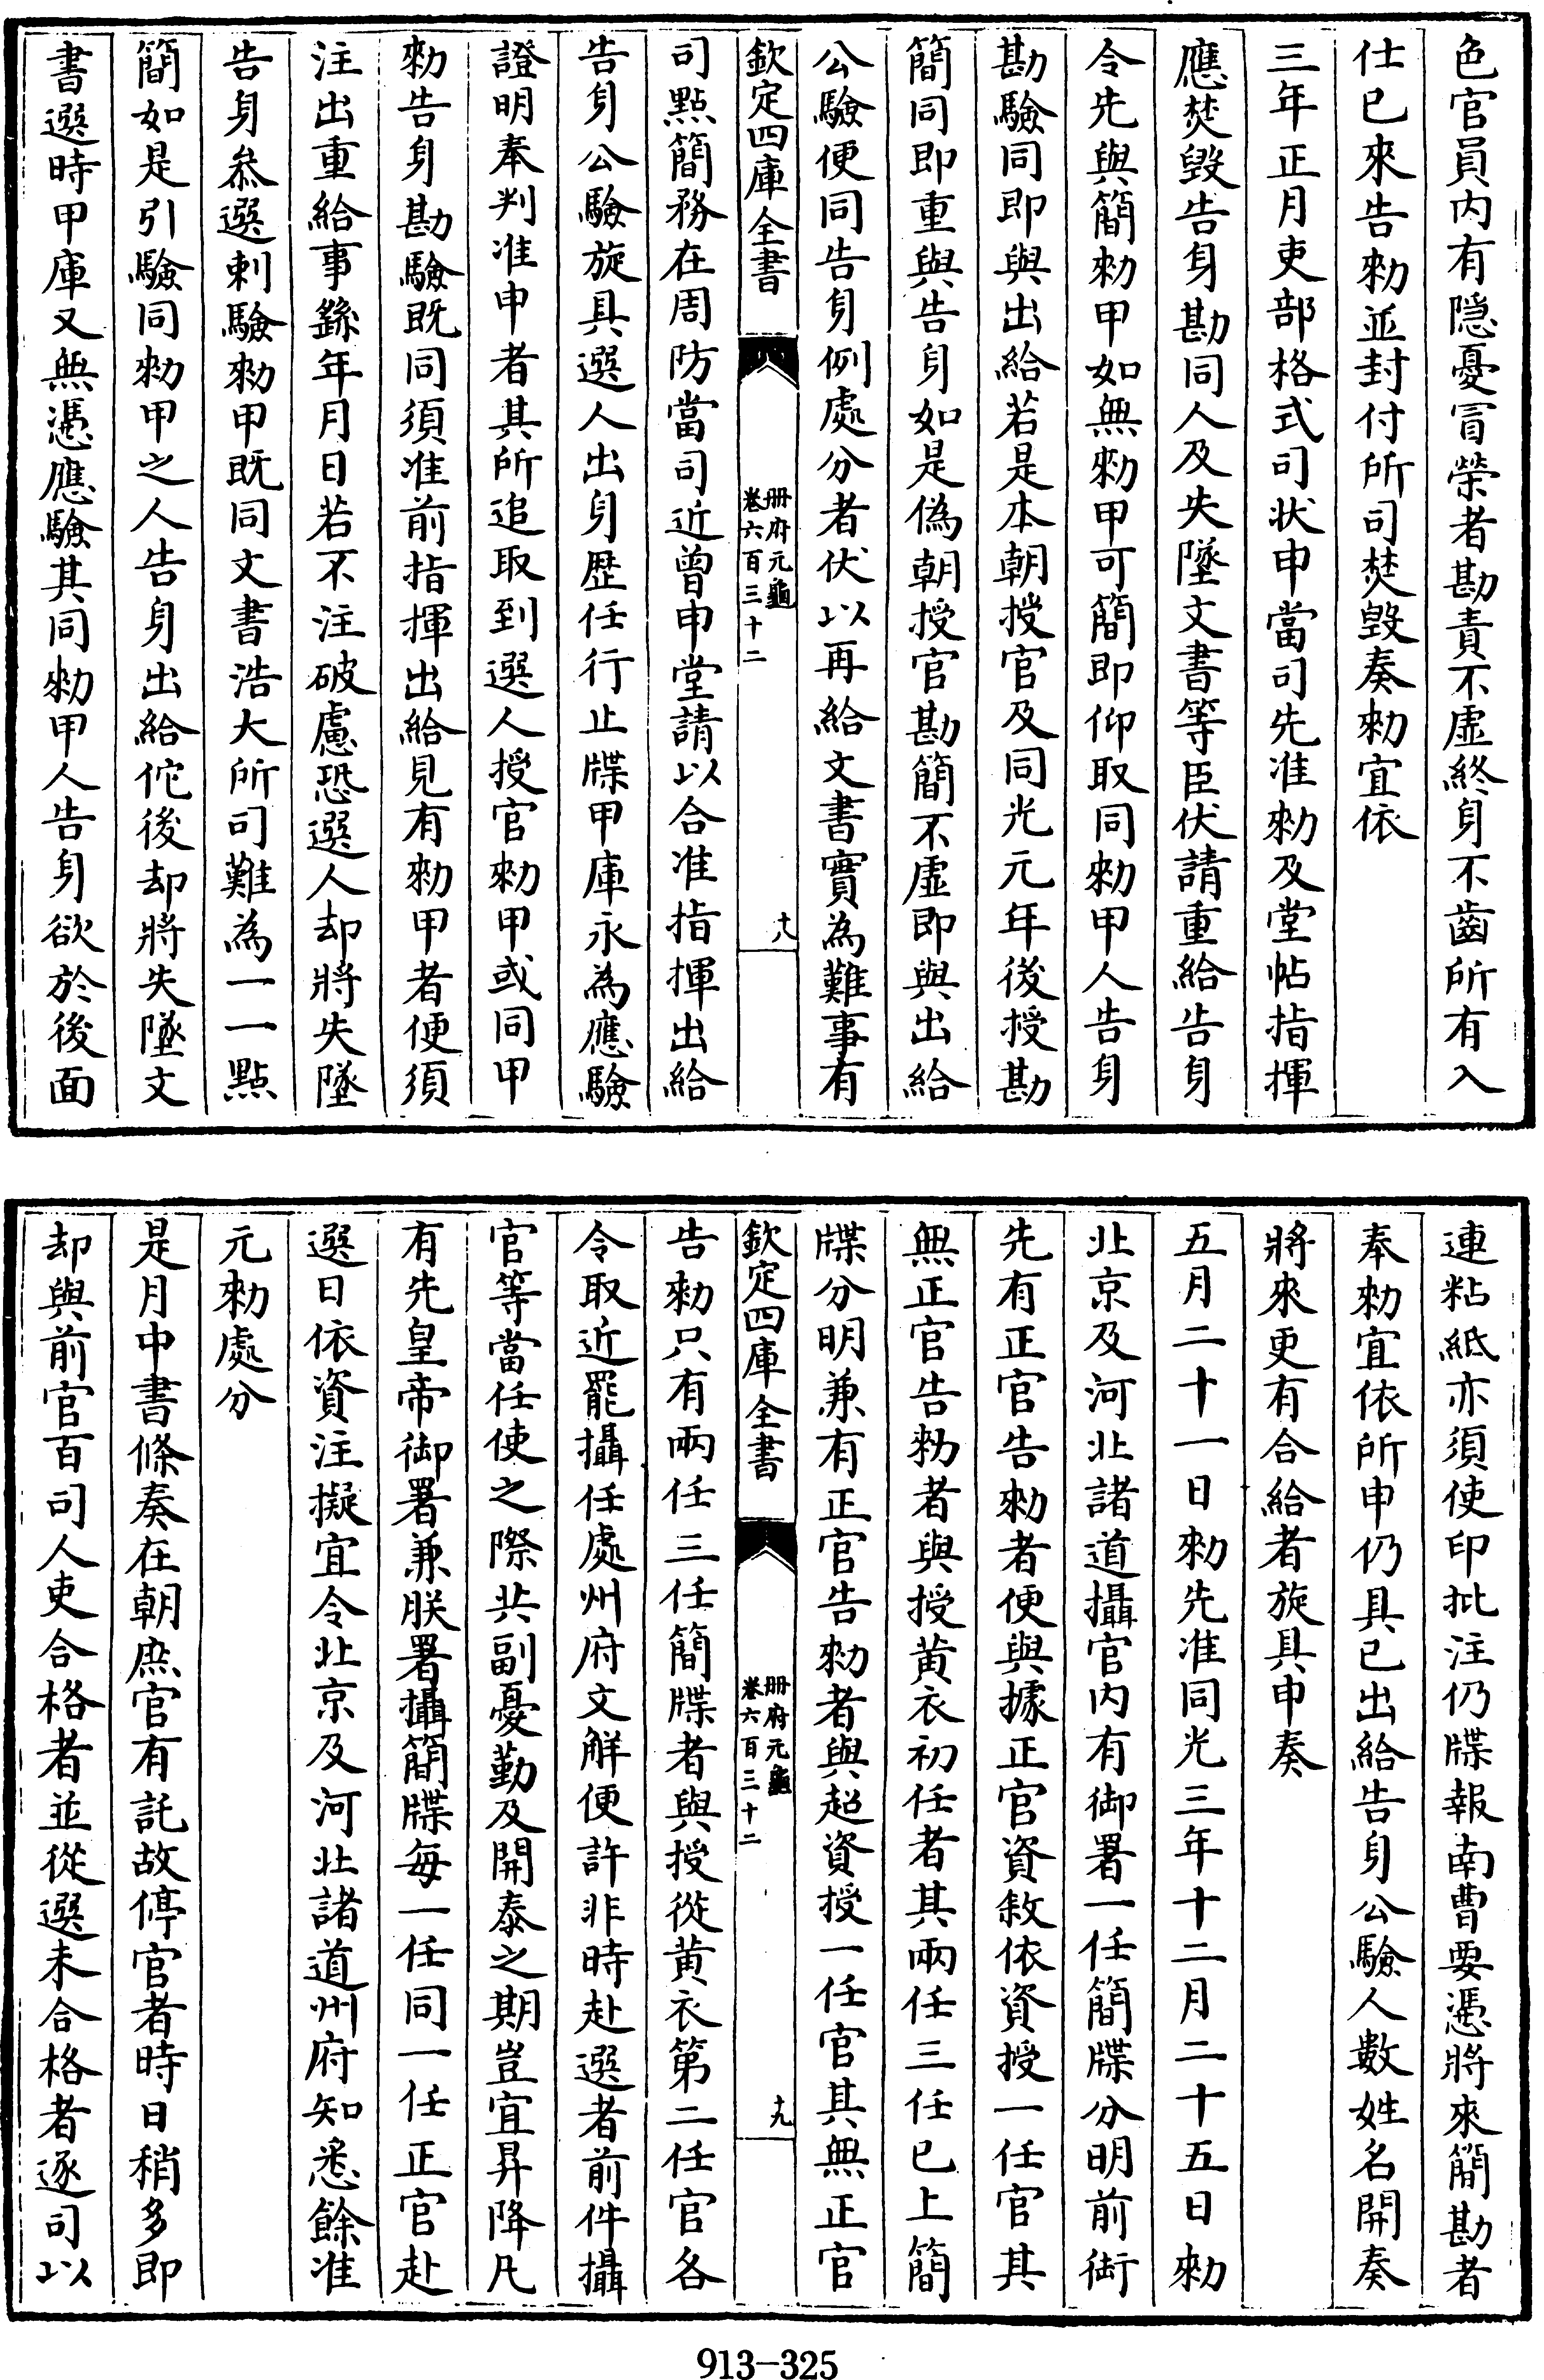 色官員内有隱憂冒榮者勘責不虛終身不齒所有入
仕已來告勑並封付所司焚毀奏勑宜依
三年正月吏部格式司状申當司先准勑及堂帖指揮
應焚毀告身勘同人及失墜文書等臣伏請重給告身
令先與簡勑甲如無勑甲可簡即仰取同勑甲人告身
勘驗同即與出給若是本朝授官及同光元年後授勘
簡同即重與告身如是偽朝授官勘簡不虛即與出給
公驗便同告身例處分者伏以再給文書實為難事有
欽定四庫全書
冊府元龜
卷六百三十二
十八
司點簡務在周防當司近曾申堂請以合准指揮出給
告身公驗旋具選人出身歷任行止牒甲庫永為應驗
證明奉判准申者其所追取到選人授官勑甲或同甲
勑告身勘驗既同須准前指揮出給見有勑甲者便須
注出重給事繇年月日若不注破慮恐選人却將失墜
告身叅選刺驗勑甲既同文書浩大所司難為一一點
簡如是引驗同勑甲之人告身出給佗後却將失墜文
書選時甲庫又無憑應驗其同勑甲人告身欲於後面
連粘紙亦須使印批注仍牒報南曹要憑將來簡勘者
奉勑宜依所申仍具已出給告身公驗人數姓名開奏
將來更有合給者旋具申奏
五月二十一日勑先准同光三年十二月二十五日勑
北京及河北諸道攝官内有御署一任簡牒分明前銜
先有正官告勑者便與據正官資敘依資授一任官其
無正官告勑者與授黄衣初任者其兩任三任已上簡
牒分明兼有正官告勑者與超資授一任官其無正官
欽定四庫全書
冊府元龜
卷六百三十二
十九
告勑只有兩任三任簡牒者與授從黄衣第二任官各
令取近罷攝任處州府文解便許非時赴選者前件攝
官等當任使之際共副憂勤及開泰之期豈宜昇降凡
有先皇帝御署兼朕署攝簡牒每一任同一任正官赴
選日依資注擬宜令北京及河北諸道州府知悉餘准
元勑處分
是月中書條奏在朝庶官有託故停官者時日稍多即
却與前官百司人吏合格者並從選未合格者逐司以
913-325